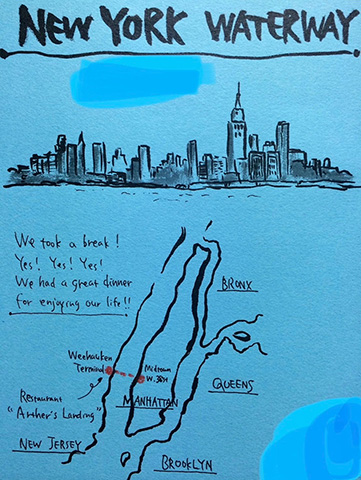 NEW YORK WATERWAY
We took a break!
Yes! Yes! Yes!
We had a great dinner
for enjoying our life!!
BRONX
Weehawken
Terminal
Midtown
W. 39th
QUEENS
Restaurant
"Archer's Landing"
MANHATTAN
NEW JERSEY
BROOKLYN